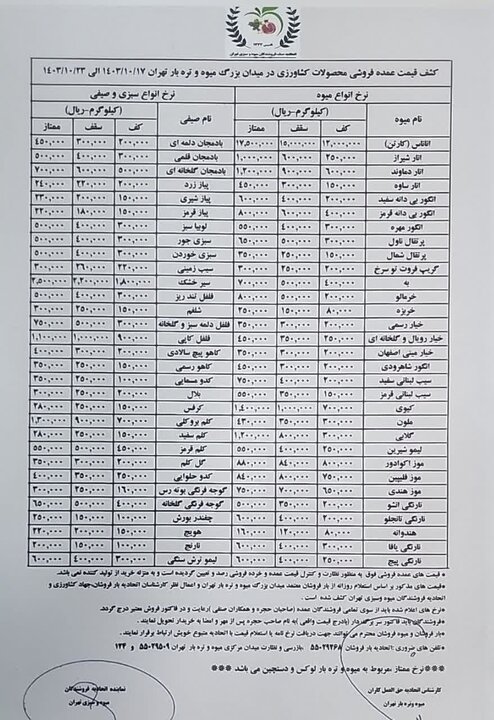 کشف قیمت عمده فروشی محصولات کشاورزی در میدان بزرگ میوه و تره بار تهران ۱۴۰۳/۱۰/۱۷ الی ۱۴۰۳/۱۰/۲۳
نرخ انواع میوه نرخ انواع سبزی و صیفی
نام میوه (کیلوگرم-ریال) نام صیفی (کیلوگرم-ریال)
کف سقف ممتاز کف سقف ممتاز
آناناس (کارتن) ۱۲,۰۰۰,۰۰۰ ۱۵,۰۰۰,۰۰۰ ۱۷,۵۰۰,۰۰۰ بادمجان دلمه ای ۲۰۰,۰۰۰ ۳۰۰,۰۰۰ ۴۵۰,۰۰۰
انار شیراز ۲۵۰,۰۰۰ ۶۰۰,۰۰۰ ۱,۰۰۰,۰۰۰ بادمجان قلمی ۳۰۰,۰۰۰ ۴۰۰,۰۰۰ ۵۰۰,۰۰۰
انار دماوند ۶۰۰,۰۰۰ ۹۰۰,۰۰۰ ۱,۲۰۰,۰۰۰ بادمجان گلخانه ای ۵۰۰,۰۰۰ ۶۰۰,۰۰۰ ۷۰۰,۰۰۰
انار ساوه ۱۵۰,۰۰۰ ۳۰۰,۰۰۰ ۴۵۰,۰۰۰ پیاز زرد ۲۰۰,۰۰۰ ۲۲۰,۰۰۰ ۲۴۰,۰۰۰
انگور بی دانه سفید ۲۰۰,۰۰۰ ۴۰۰,۰۰۰ ۶۰۰,۰۰۰ پیاز شیری ۱۵۰,۰۰۰ ۲۰۰,۰۰۰ ۲۳۰,۰۰۰
انگور بی دانه قرمز ۴۰۰,۰۰۰ ۶۰۰,۰۰۰ ۸۰۰,۰۰۰ پیاز قرمز ۱۵۰,۰۰۰ ۱۸۰,۰۰۰ ۲۲۰,۰۰۰
انگور مهره ۳۰۰,۰۰۰ ۴۰۰,۰۰۰ ۵۵۰,۰۰۰ لوبیا سبز ۳۰۰,۰۰۰ ۴۰۰,۰۰۰ ۵۰۰,۰۰۰
پرتقال ناول ۳۰۰,۰۰۰ ۵۰۰,۰۰۰ ۶۵۰,۰۰۰ سبزی جور ۳۰۰,۰۰۰ ۴۰۰,۰۰۰ ۵۰۰,۰۰۰
پرتقال شمال ۱۵۰,۰۰۰ ۲۵۰,۰۰۰ ۳۵۰,۰۰۰ سبزی خوردن ۳۰۰,۰۰۰ ۴۰۰,۰۰۰ ۵۰۰,۰۰۰
گریپ فروت تو سرخ ۲۰۰,۰۰۰ ۲۵۰,۰۰۰ ۳۰۰,۰۰۰ سیب زمینی ۲۲۰,۰۰۰ ۲۶۰,۰۰۰ ۳۰۰,۰۰۰
به ۴۰۰,۰۰۰ ۵۰۰,۰۰۰ ۷۰۰,۰۰۰ سیر خشک ۱,۸۰۰,۰۰۰ ۲,۲۰۰,۰۰۰ ۲,۵۰۰,۰۰۰
خرمالو ۲۰۰,۰۰۰ ۵۰۰,۰۰۰ ۸۰۰,۰۰۰ فلفل تند ریز ۳۰۰,۰۰۰ ۴۰۰,۰۰۰ ۵۰۰,۰۰۰
خربزه ۸۰,۰۰۰ ۱۵۰,۰۰۰ ۲۵۰,۰۰۰ شلغم ۱۵۰,۰۰۰ ۲۵۰,۰۰۰ ۳۰۰,۰۰۰
خیار رسمی ۲۰۰,۰۰۰ ۳۰۰,۰۰۰ ۳۵۰,۰۰۰ فلفل دلمه سبز و گلخانه ۳۰۰,۰۰۰ ۵۰۰,۰۰۰ ۷۵۰,۰۰۰
خیار رویال و گلخانه ای ۲۵۰,۰۰۰ ۳۵۰,۰۰۰ ۴۵۰,۰۰۰ فلفل کاپی ۹۰۰,۰۰۰ ۱,۰۰۰,۰۰۰ ۱,۱۰۰,۰۰۰
خیار مینی اصفهان ۲۰۰,۰۰۰ ۳۰۰,۰۰۰ ۳۵۰,۰۰۰ کاهو پیچ سالادی ۲۰۰,۰۰۰ ۳۰۰,۰۰۰ ۴۰۰,۰۰۰
انگور شاهرودی ۲۰۰,۰۰۰ ۳۰۰,۰۰۰ ۴۵۰,۰۰۰ کاهو رسمی ۱۵۰,۰۰۰ ۲۵۰,۰۰۰ ۳۵۰,۰۰۰
سیب لبنانی سفید ۲۰۰,۰۰۰ ۴۰۰,۰۰۰ ۷۵۰,۰۰۰ کدو مسمایی ۱۰۰,۰۰۰ ۲۵۰,۰۰۰ ۳۵۰,۰۰۰
سیب لبنانی قرمز ۱۵۰,۰۰۰ ۳۵۰,۰۰۰ ۵۵۰,۰۰۰ بلال ۲۰۰,۰۰۰ ۲۵۰,۰۰۰ ۳۰۰,۰۰۰
کیوی ۷۰۰,۰۰۰ ۱,۰۰۰,۰۰۰ ۱,۴۰۰,۰۰۰ کرفس ۱۵۰,۰۰۰ ۲۵۰,۰۰۰ ۲۸۰,۰۰۰
ملون ۲۰۰,۰۰۰ ۳۵۰,۰۰۰ ۴۳۰,۰۰۰ کلم بروکلی ۷۰۰,۰۰۰ ۹۰۰,۰۰۰ ۱,۳۰۰,۰۰۰
گلابی ۳۰۰,۰۰۰ ۸۰۰,۰۰۰ ۱,۲۰۰,۰۰۰ کلم سفید ۱۵۰,۰۰۰ ۲۵۰,۰۰۰ ۲۸۰,۰۰۰
لیمو شیرین ۲۰۰,۰۰۰ ۴۰۰,۰۰۰ ۵۵۰,۰۰۰ کلم قرمز ۴۵۰,۰۰۰ ۵۰۰,۰۰۰ ۵۵۰,۰۰۰
موز اکوادور ۸۰۰,۰۰۰ ۸۴۰,۰۰۰ ۸۸۰,۰۰۰ گل کلم ۲۰۰,۰۰۰ ۳۰۰,۰۰۰ ۳۵۰,۰۰۰
موز فلیپین ۷۵۰,۰۰۰ ۸۰۰,۰۰۰ ۸۴۰,۰۰۰ کدو حلوایی ۲۵۰,۰۰۰ ۳۵۰,۰۰۰ ۴۰۰,۰۰۰
موز هندی ۶۵۰,۰۰۰ ۷۰۰,۰۰۰ ۷۵۰,۰۰۰ گوجه فرنگی بوته رس ۱۶۰,۰۰۰ ۲۵۰,۰۰۰ ۳۰۰,۰۰۰
نارنگی انشو ۲۰۰,۰۰۰ ۴۰۰,۰۰۰ ۵۰۰,۰۰۰ گوجه فرنگی گلخانه ۴۰۰,۰۰۰ ۵۰۰,۰۰۰ ۶۵۰,۰۰۰
نارنگی تانجلو ۲۰۰,۰۰۰ ۴۰۰,۰۰۰ ۶۰۰,۰۰۰ چغندر بورش ۱۰۰,۰۰۰ ۱۵۰,۰۰۰ ۲۵۰,۰۰۰
هندوانه ۸۰,۰۰۰ ۱۲۰,۰۰۰ ۱۶۰,۰۰۰ هویج ۱۵۰,۰۰۰ ۲۰۰,۰۰۰ ۲۲۰,۰۰۰
نارنگی یافا ۳۰۰,۰۰۰ ۴۰۰,۰۰۰ ۶۰۰,۰۰۰ نارنج ۱۰۰,۰۰۰ ۱۵۰,۰۰۰ ۲۰۰,۰۰۰
نارنگی پیج ۲۵۰,۰۰۰ ۴۰۰,۰۰۰ ۵۵۰,۰۰۰ لیمو ترش سنگی ۳۰۰,۰۰۰ ۴۰۰,۰۰۰ ۶۰۰,۰۰۰
* قیمت های عمده فروشی فوق به منظور نظارت و کنترل قیمت عمده و خرده فروشی رصد و تعیین گردیده است و به منزله خرید از تولید کننده نمی باشد.
*قیمت های مذکور بر اساس استعلام روزانه از بار فروشان معتمد میدان بزرگ میوه و تره بار تهران و اعمال نظر کارشناسان اتحادیه بار فروشان،جهاد کشاورزی و
اتحادیه فروشندگان میوه وسبزی تهران کشف شده است .
*نرخ های اعلام شده باید از سوی تمامی فروشندگان عمده (صاحبان حجره و همکاران صنفی )رعایت و در فاکتور فروش معتبر درج گردد.
*فروشندگان باید فاکتور سر برگدار (بادرج قیمت واقعی )به نام صاحب حجره پس از مهر و امضا به خریدار تحویل نمایند .
*بار فروشان و میوه فروشان محترم می توانند جهت دریافت نرخ نامه یا استعلام قیمت با اتحادیه متبوع خویش ارتباط برقرار نمایند.
*تلفن های ضروری: اتحادیه بار فروشان ،بازرسی و نظارت میدان مرکزی میوه و تره بار تهران ۵۵۰۲۹۵۰۹ و ۱۲۴
***نرخ ممتاز ،مربوط به میوه و تره بار لوکس و دستچین می باشد ***
کارشناس اتحادیه حق العمل کاران
میوه وتره بار تهران
نماینده اتحادیه فروشندگان
میوه و سبزی تهران